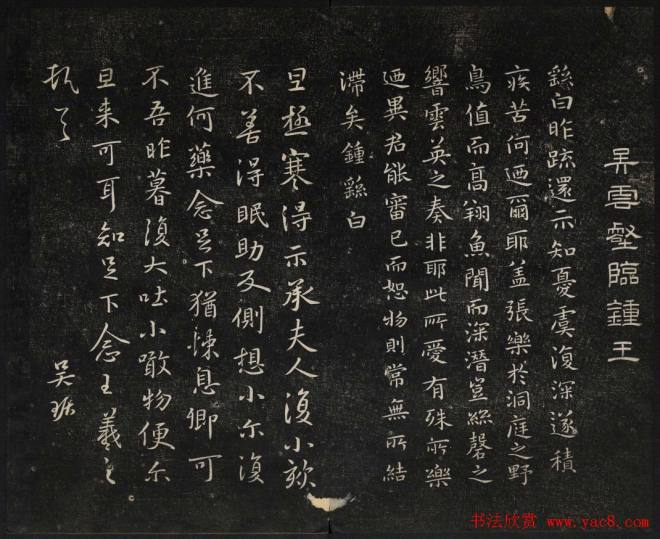 吴雲壑臨鍾王
繇白昨疏還示知憂虞復深遂積
疾苦何迺爾耶蓋張樂於洞庭之野
鳥值而高翔魚聞而深潛豈絲磬之
響雲英之奏非耶此所愛有殊所樂
迺異君能審己而恕物則常無所結
滯矣鍾繇白
旦極寒得示承夫人復小欬
不善得眠助反側想小尔復
進何藥念足下猶悚息卿可
不吾昨暮復大吐小噉物便尔
旦来可耳知足下念王羲之
頓首
吴琚
书法欣赏 www.yac8.com